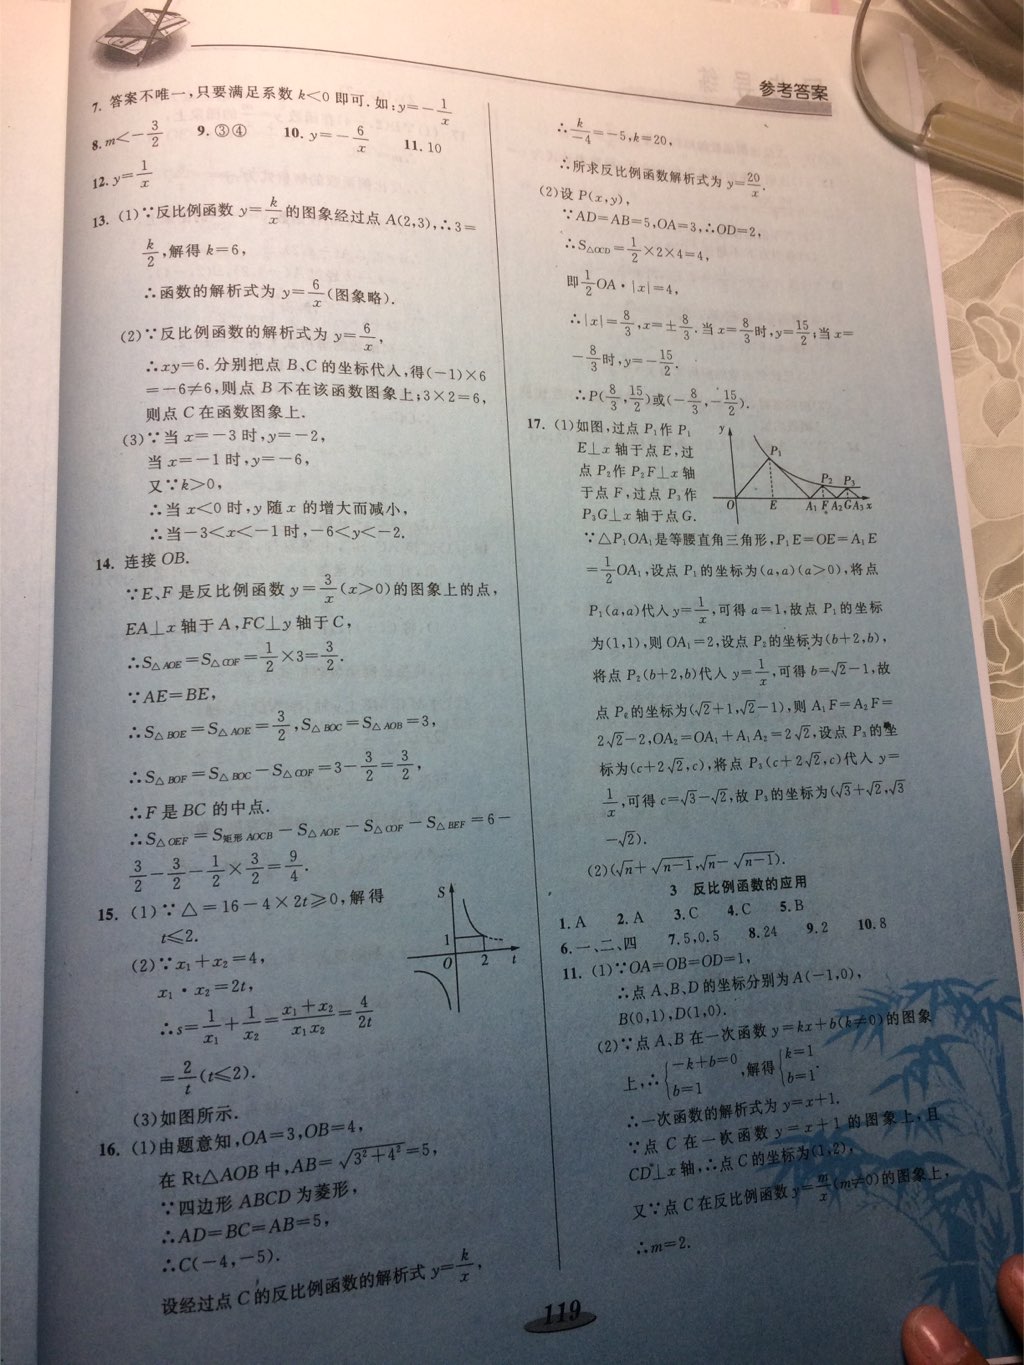 参考答案
7. 答案不唯一,只要满足系数 k<0 即可.如:y=-1/x
8. m<-3/2  9. ③④  10. y=-6/x  11. 10
12. y=1/x
13. (1)∵反比例函数 y=k/x 的图象经过点 A(2,3),∴3=
k/2,解得 k=6,
∴函数的解析式为 y=6/x(图象略).
(2)∵反比例函数的解析式为 y=6/x,
∴xy=6.分别把点 B、C 的坐标代入,得(-1)×6
=-6≠6,则点 B 不在该函数图象上;3×2=6,
则点 C 在函数图象上.
(3)∵当 x=-3 时,y=-2,
当 x=-1 时,y=-6,
又∵k>0,
∴当 x<0 时,y 随 x 的增大而减小,
∴当-3<x<-1 时,-6<y<-2.
14. 连接 OB.
∵E、F 是反比例函数 y=3/x(x>0)的图象上的点,
EA⊥x 轴于 A,FC⊥y 轴于 C,
∴S△AOE=S△COF=1/2×3=3/2.
∵AE=BE,
∴S△BOE=S△AOE=3/2,S△BOC=S△AOB=3,
∴S△BOF=S△BOC-S△COF=3-3/2=3/2,
∴F 是 BC 的中点.
∴S△OEF=S矩形AOCB-S△AOE-S△COF-S△BEF=6-
3/2-3/2-1/2×3/2=9/4.
15. (1)∵△=16-4×2t≥0,解得
t≤2.
(2)∵x₁+x₂=4,
x₁·x₂=2t,
∴s=1/x₁+1/x₂=(x₁+x₂)/(x₁x₂)=4/(2t)
=2/t(t≤2).
(3)如图所示.
S
1
O 2 t
16. (1)由题意知,OA=3,OB=4,
在 Rt△AOB 中,AB=√(3²+4²)=5,
∵四边形 ABCD 为菱形,
∴AD=BC=AB=5,
∴C(-4,-5).
设经过点 C 的反比例函数的解析式 y=k/x,
∴k/(-4)=-5,k=20,
∴所求反比例函数解析式为 y=20/x.
(2)设 P(x,y),
∵AD=AB=5,OA=3,∴OD=2,
∴S△OCD=1/2×2×4=4,
即1/2OA·|x|=4,
∴|x|=8/3,x=±8/3.当 x=8/3时,y=15/2;当 x=
-8/3时,y=-15/2.
∴P(8/3,15/2)或(-8/3,-15/2).
17. (1)如图,过点 P₁作 P₁
E⊥x 轴于点 E,过
点 P₂作 P₂F⊥x 轴
于点 F,过点 P₃作
P₃G⊥x 轴于点 G.
y
P₁
P₂ P₃
O E A₁ F A₂ G A₃ x
∵△P₁OA₁是等腰直角三角形,P₁E=OE=A₁E
=1/2OA₁,设点 P₁的坐标为(a,a)(a>0),将点
P₁(a,a)代入 y=1/x,可得 a=1,故点 P₁的坐标
为(1,1),则 OA₁=2,设点 P₂的坐标为(b+2,b),
将点 P₂(b+2,b)代入 y=1/x,可得 b=√2-1,故
点 P₂的坐标为(√2+1,√2-1),则 A₁F=A₂F=
2√2-2,OA₂=OA₁+A₁A₂=2√2,设点 P₃的坐
标为(c+2√2,c),将点 P₃(c+2√2,c)代入 y=
1/x,可得 c=√3-√2,故 P₃的坐标为(√3+√2,√3
-√2).
(2)(√n+√(n-1),√n-√(n-1)).
3 反比例函数的应用
1. A  2. A  3. C  4. C  5. B
6. 一、二、四  7. 5,0.5  8. 24  9. 2  10. 8
11. (1)∵OA=OB=OD=1,
∴点 A、B、D 的坐标分别为 A(-1,0),
B(0,1),D(1,0).
(2)∵点 A、B 在一次函数 y=kx+b(k≠0)的图象
上,∴{-k+b=0 b=1,解得{k=1 b=1.
∴一次函数的解析式为 y=x+1.
∵点 C 在一次函数 y=x+1 的图象上,且
CD⊥x 轴,∴点 C 的坐标为(1,2),
又∵点 C 在反比例函数 y=m/x(m≠0)的图象上,
∴m=2.
119